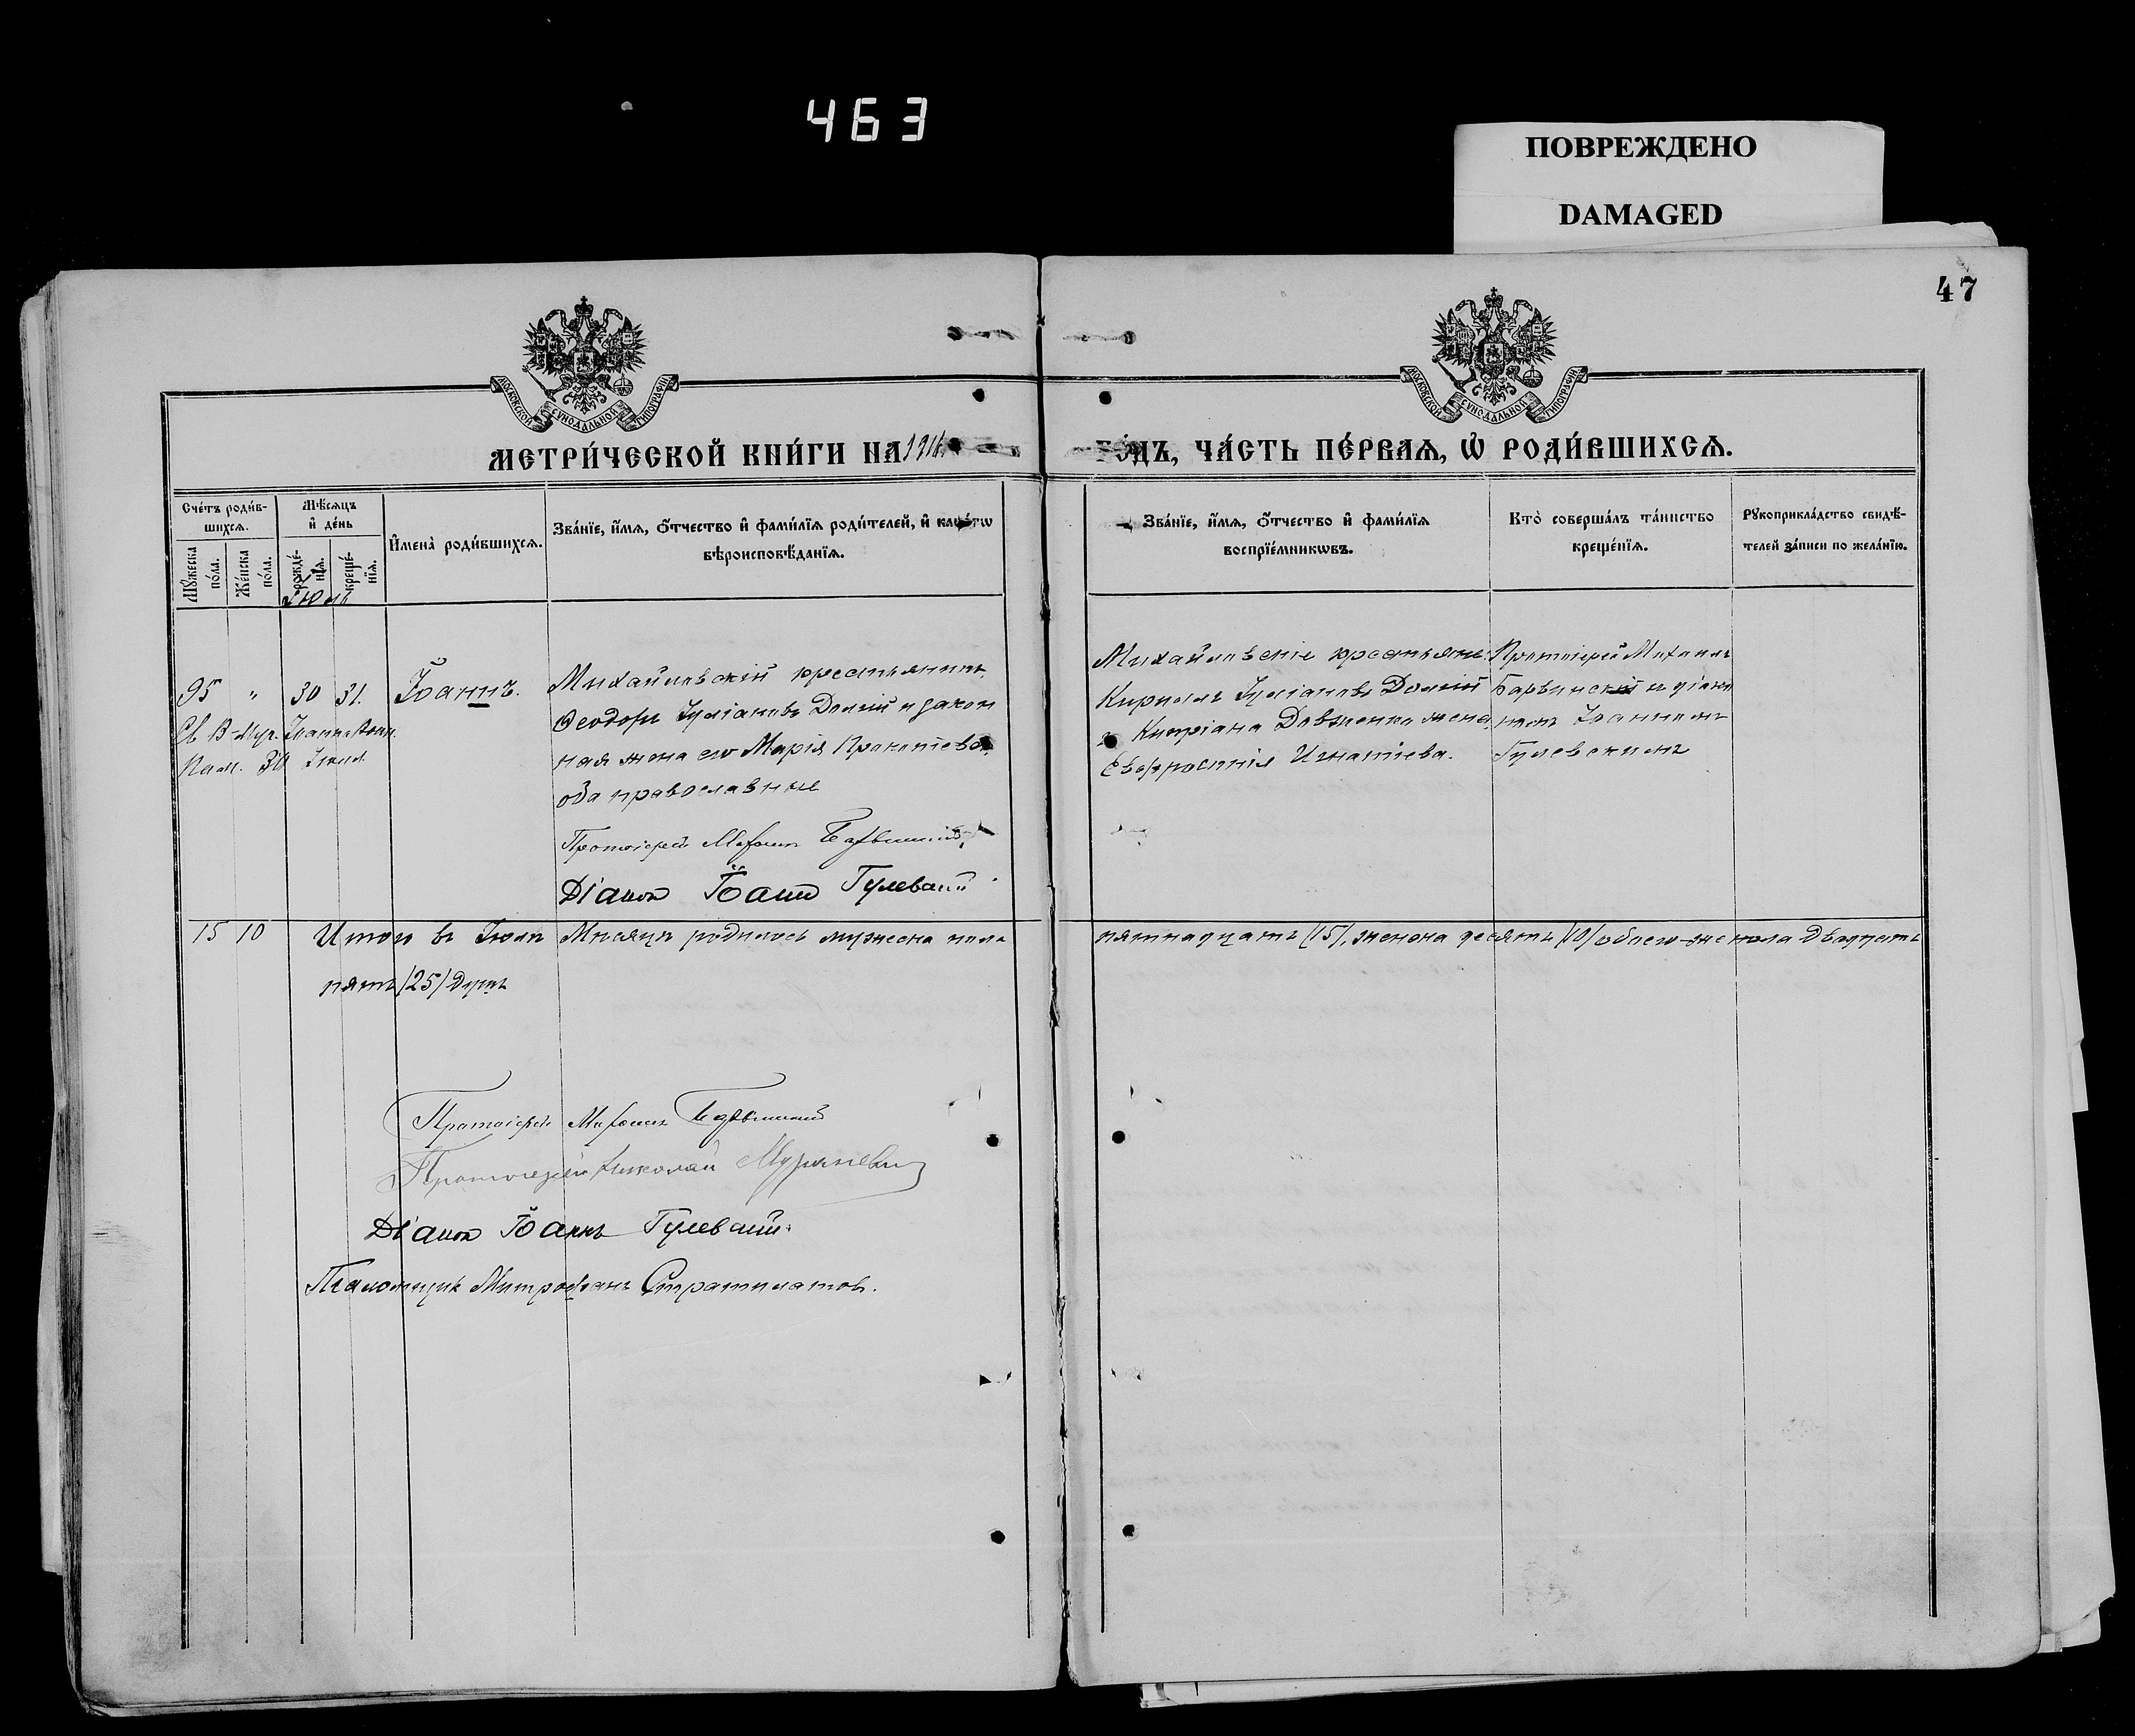 463
ПОВРЕЖДЕНО
DAMAGED
47
МОСКОВСКОЙ СѴНОДАЛЬНОЙ ТИПОГРАФІИ
МОСКОВСКОЙ СѴНОДАЛЬНОЙ ТИПОГРАФІИ
МЕТРИ́ЧЕСКОЙ КНИ́ГИ НА 191
ГО́ДЪ, ЧА́СТЬ ПЕ́РВАѦ, Ѡ҆ РОДИ́ВШИХСѦ.
Сче́тъ роди́в-
шихсѧ.
Мꙋ́жеска
по́ла.
Же́нска
по́ла.
Мѣ́сѧцъ
и҆ де́нь
рожде́-
нїѧ.
креще́-
нїѧ.
Июль
И҆мена̀ роди́вшихсѧ.
Зва́нїе, и҆́мѧ, ѻ҆́тчество и҆ фами́лїѧ роди́телей, и҆ како́гѡ
вѣроисповѣ́данїѧ.
Зва́нїе, и҆́мѧ, ѻ҆́тчество и҆ фами́лїѧ
воспрїе́мникѡвъ.
Кто̀ соверша́лъ та́инство
креще́нїѧ.
Рꙋкоприкла́дство свидѣ́-
телей за́писи по жела́нїю.
95 " 30 31. Іоаннъ.
Св. В-Муч. Іоанна Воин.
Пам. 30 Іюля.
Михайловскій крестьянинъ
Ѳеодоръ Іуліановъ Долгій и закон
ная жена его Марія Прокопіева
оба православные
Протоіерей Михаилъ Барвинскій
Діакон Іоанн Гулевскій
Михайловскіе крестьяне:
Кириллъ Іуліановъ Долгій
и Кипріана Довженко жена
Евфросинія Игнатіева.
Протоіерей Михаилъ
Барвинскій и діако
номъ Іоанномъ
Гулевскимъ
15 10 Итого въ Іюлѣ Мѣсяцѣ родилось мужеска пола пятнадцать /15/, женска десять /10/ обоего-же пола двадцать
пять /25/ душъ
Протоіерей Михаилъ Барвинскій
Протоіерей Николай
Діакон Іоаннъ Гулевскій.
Псаломщик Митрофанъ Стратилатовъ.